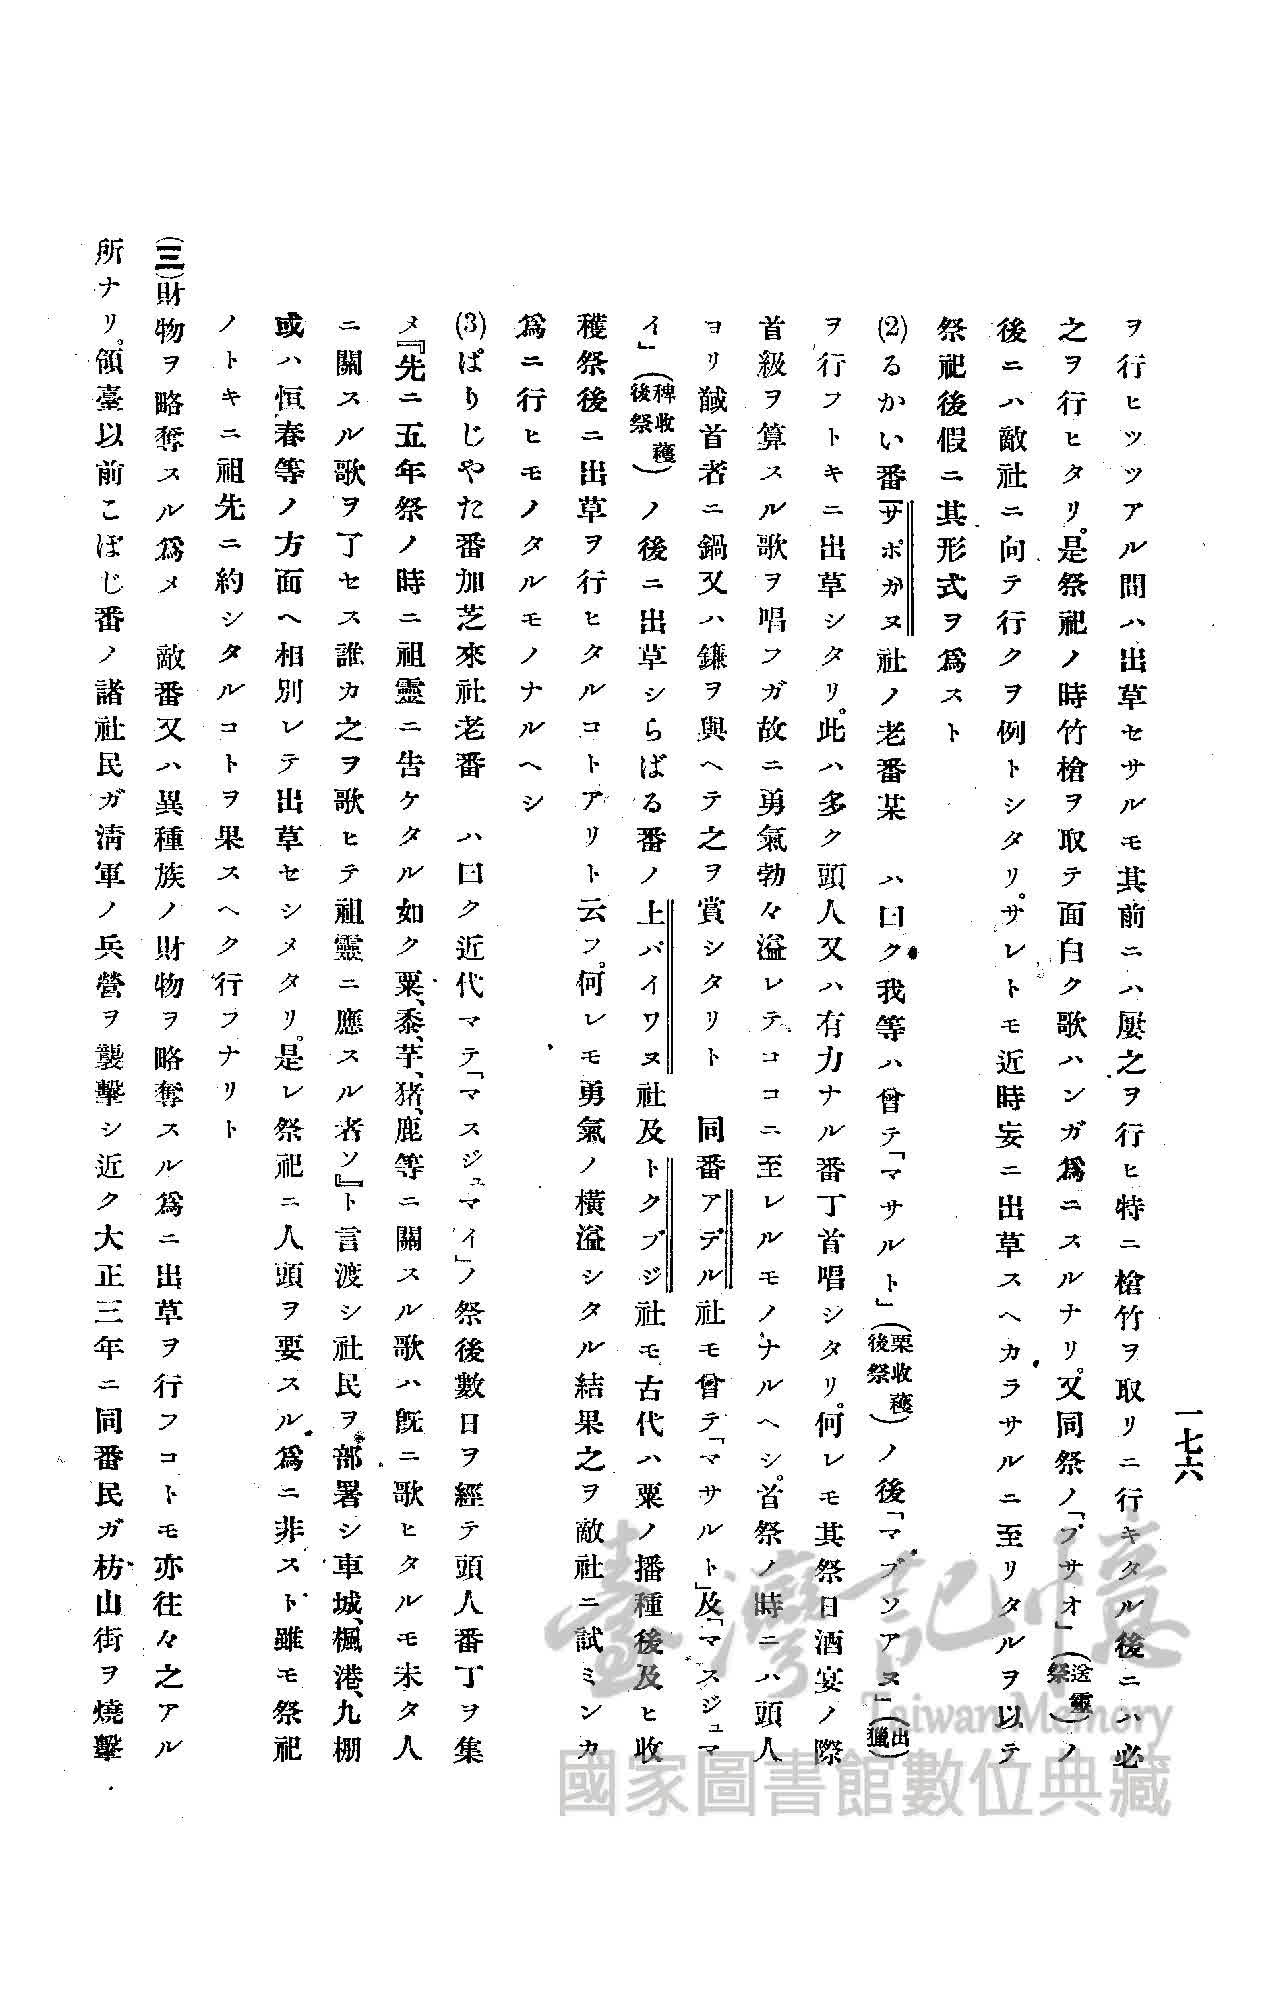 一七六
ヲ行ヒツツアル間ハ出草セサルモ其前ニハ屢之ヲ行ヒ特ニ槍竹ヲ取リニ行キタル後ニハ必
之ヲ行ヒタリ。是祭祀ノ時竹槍ヲ取テ面白ク歌ハンガ爲ニスルナリ。又同祭ノ「ブサオ」(送靈祭)ノ
後ニハ敵社ニ向テ行クヲ例トシタリ。サレトモ近時妄ニ出草スヘカラサルニ至リタルヲ以テ
祭祀後假ニ其形式ヲ爲スト
(2)るかい番「サポガヌ社ノ老番某　ハ曰ク我等ハ曾テ「マサルト」(粟收穫後祭)ノ後「マブソアヌ」(出獵)
ヲ行フトキニ出草シタリ。此ハ多ク頭人又ハ有力ナル番丁首唱シタリ。何レモ其祭日酒宴ノ際
首級ヲ算スル歌ヲ唱フガ故ニ勇氣勃々溢レテココニ至レルモノナルヘシ。首祭ノ時ニハ頭人
ヨリ馘首者ニ鍋又ハ鎌ヲ與ヘテ之ヲ賞シタリト　同番アデル社モ曾テ「マサルト」及「マスジュマ
イ」(稗收穫後祭)ノ後ニ出草シらばる番ノ上パイワヌ社及トクブジ社モ古代ハ粟ノ播種後及ヒ收
穫祭後ニ出草ヲ行ヒタルコトアリト云フ。何レモ勇氣ノ橫溢シタル結果之ヲ敵社ニ試ミンカ
爲ニ行ヒモノタルモノナルヘシ
(3)ぱりじやた番加芝來社老番　ハ曰ク近代マテ「マスジュマイ」ノ祭後數日ヲ經テ頭人番丁ヲ集
メ『先ニ五年祭ノ時ニ祖靈ニ告ケタル如ク粟、黍、芋、猪、鹿等ニ關スル歌ハ旣ニ歌ヒタルモ未タ人
ニ關スル歌ヲ了セス誰カ之ヲ歌ヒテ祖靈ニ應スル者ソ』ト言渡シ社民ヲ部署シ車城、楓港、九棚
或ハ恒春等ノ方面ヘ相別レテ出草セシメタリ。是レ祭祀ニ人頭ヲ要スル爲ニ非スト雖モ祭祀
ノトキニ祖先ニ約シタルコトヲ果スヘク行フナリト
(三)財物ヲ略奪スル爲メ　敵番又ハ異種族ノ財物ヲ略奪スル爲ニ出草ヲ行フコトモ亦往々之アル
所ナリ。領臺以前こぼじ番ノ諸社民ガ淸軍ノ兵營ヲ襲擊シ近ク大正三年ニ同番民ガ枋山街ヲ燒擊
臺灣記憶
Taiwan Memory
國家圖書館數位典藏